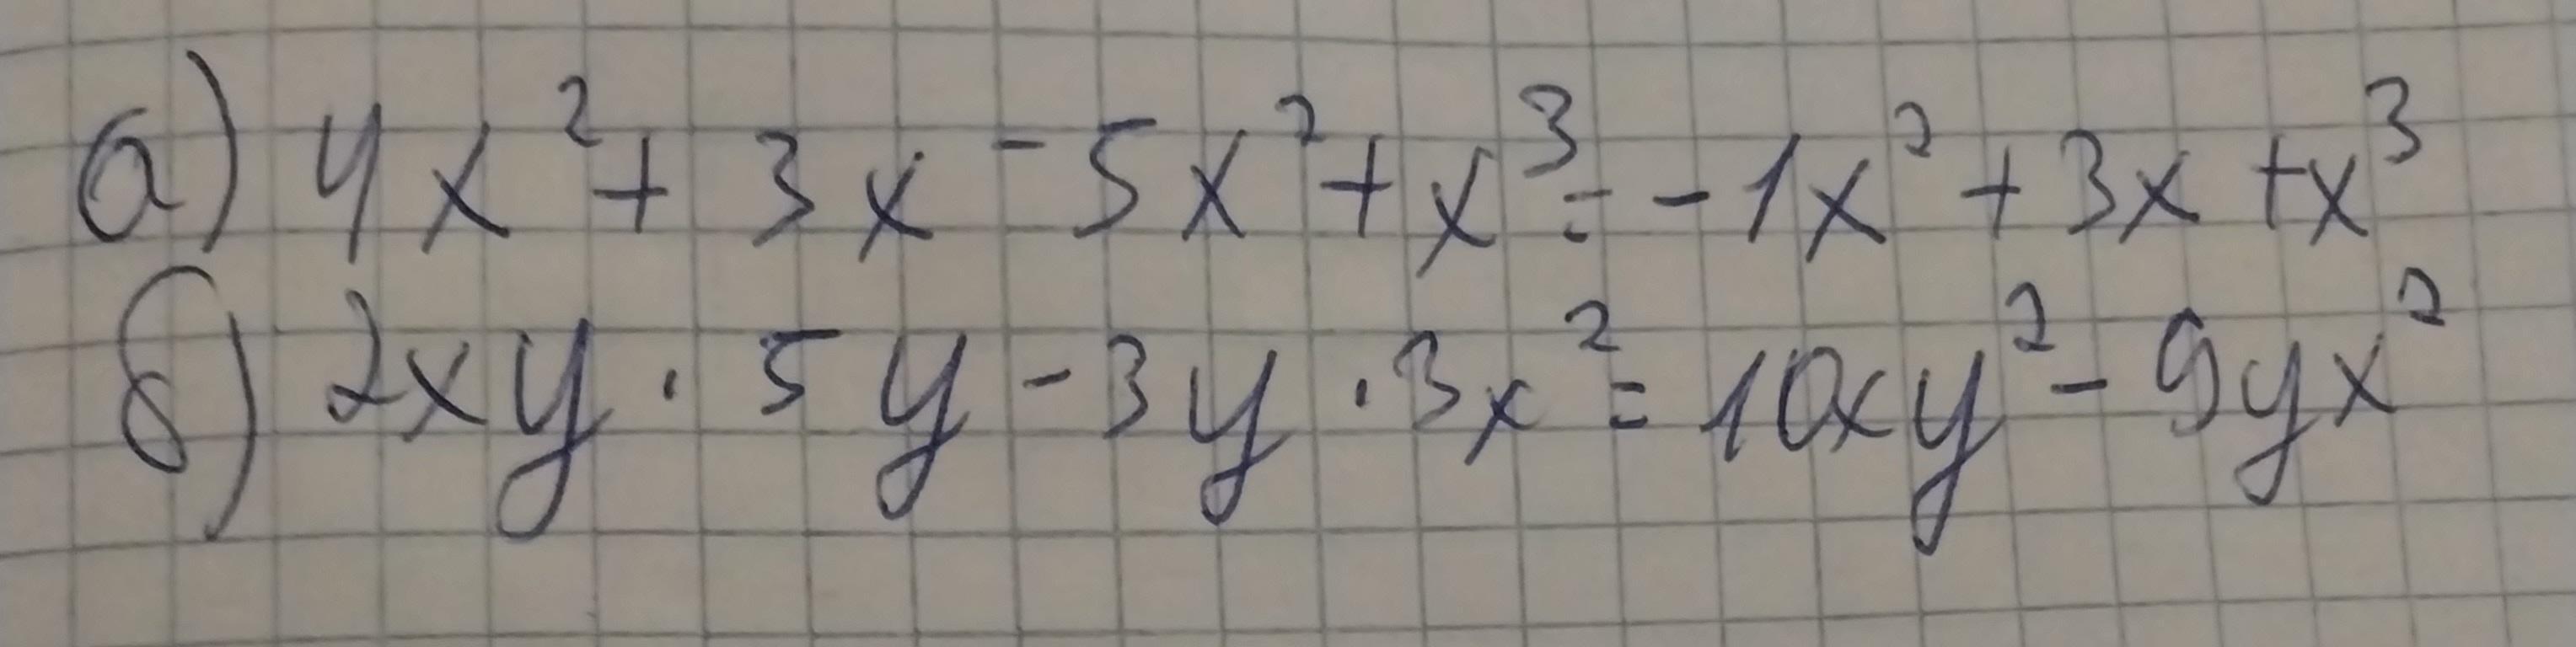 а) 4x² + 3x - 5x² + x³ = - 1x² + 3x + x³
б) 2xy · 5y - 3y · 3x² = 10xy² - 9yx²